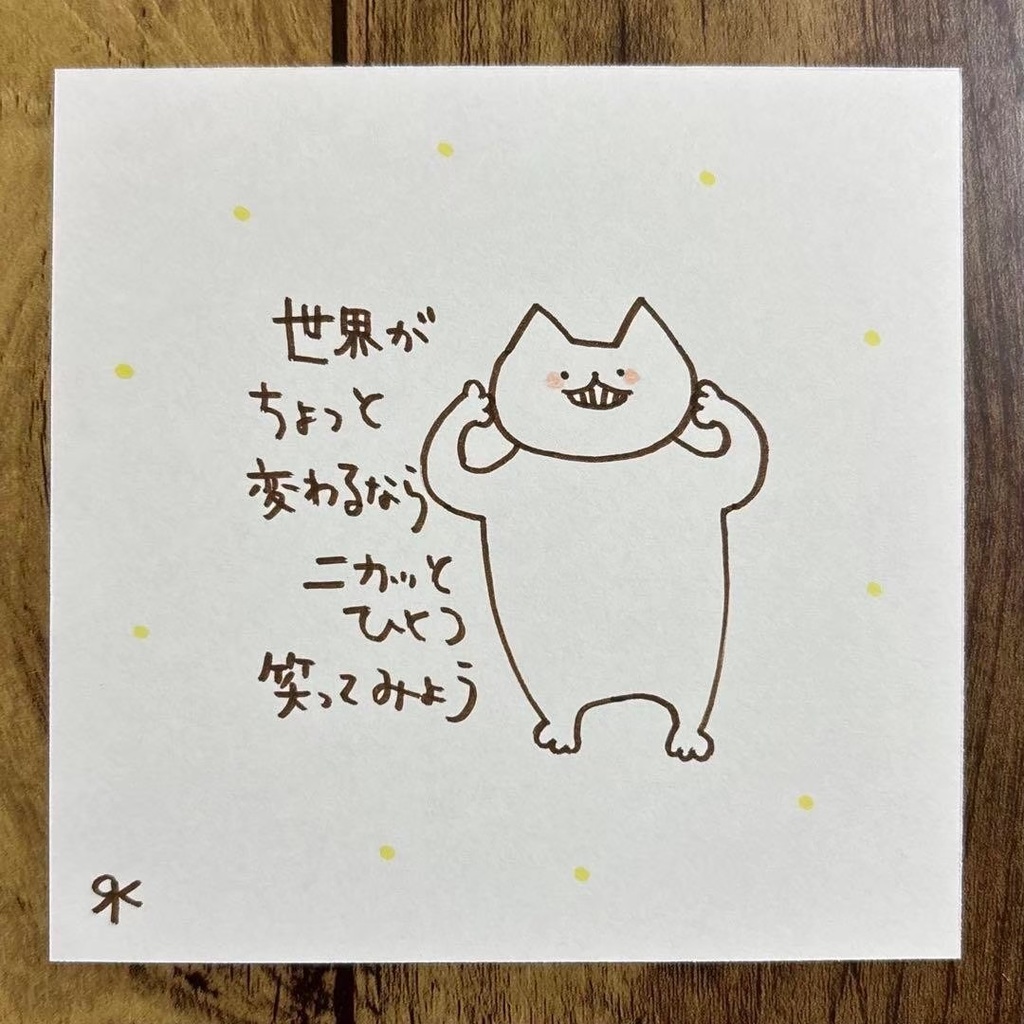 世界が
ちょっと
変わるなら
ニカッと
ひとつ
笑ってみよう